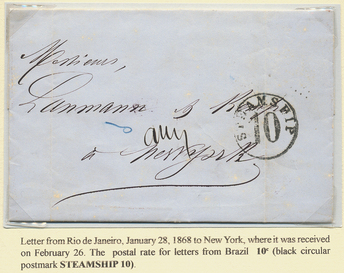 Messieurs,
Lanmann & Kemp
à Newyork
STEAMSHIP
10
Letter from Rio de Janeiro, January 28, 1868 to New York, where it was received
on February 26. The postal rate for letters from Brazil 10c (black circular
postmark STEAMSHIP 10).